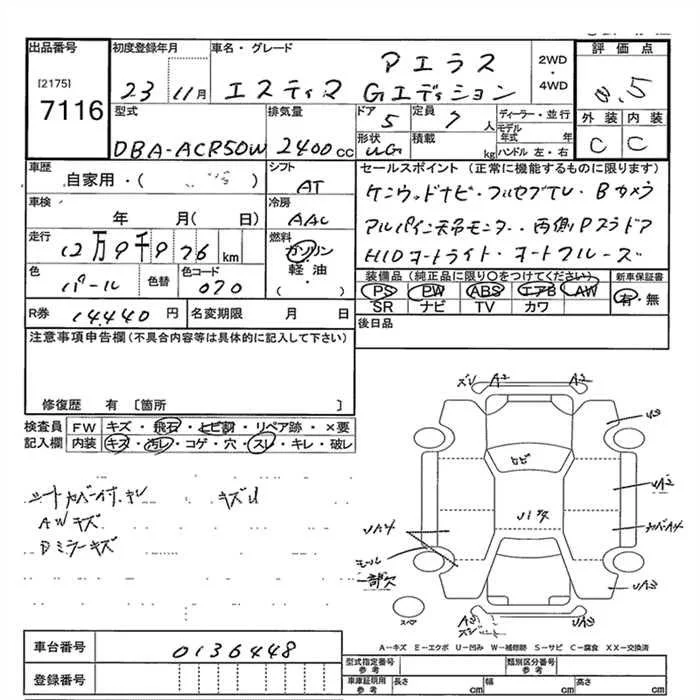 出品番号
[2175]
7116
初度登録年月
23 11月
車名・グレード
アエラス
エスティマ Gエディション
2WD
・
4WD
評価点
外装 内装
C C
型式
DBA-ACR50W
排気量
2400cc
ドア
5
形状
定員
7人
積載
kg
ディーラー・並行
モデル年式 年
ハンドル 左・右
車歴
自家用・( )
シフト
AT
セールスポイント (正常に機能するものに限ります)
ケンウッドナビ・フルセグTV・Bカメラ
アルパイン天吊モニター・両側Pスラドア
HIDオートライト・オートクルーズ
車検
年 月( 日)
冷房
AAC
走行
12万9千976km
燃料
ガソリン
軽・油
( )
色
パール
色替
色コード
070
装備品 (純正品に限り○をつけてください)
PS PW ABS エアB AW
SR ナビ TV カワ
新車保証書
有・無
R券
14,440円
名変期限 月 日
後日品
注意事項申告欄(不具合内容等は具体的に記入して下さい)
修復歴 有 [箇所 ]
検査員
記入欄
FW キズ・飛石・トビ調・リペア跡・×要
内装 キズ・汚レ・コゲ・穴・スレ・キレ・破レ
シートカバー付・キレ
AWキズ
キズU
ズレ A2 A2
ロビ
モール
一部欠
スペア
A-キズ E-エクボ U-凹み W-補修跡 S-サビ C-腐食 XX-交換済
車台番号
0136448
登録番号
型式指定番号
参考
類別区分番号
参考
車庫証明用
参考
長さ cm
幅 cm
高さ cm